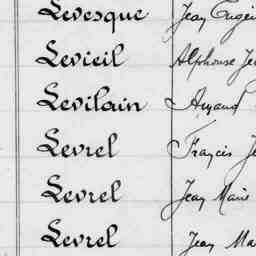 Levesque Jean Eugèn
Levieil Alphonse Je
Levilain Arnaud
Levrel Francis Je
Levrel Jean Marie
Levrel Jean Ma